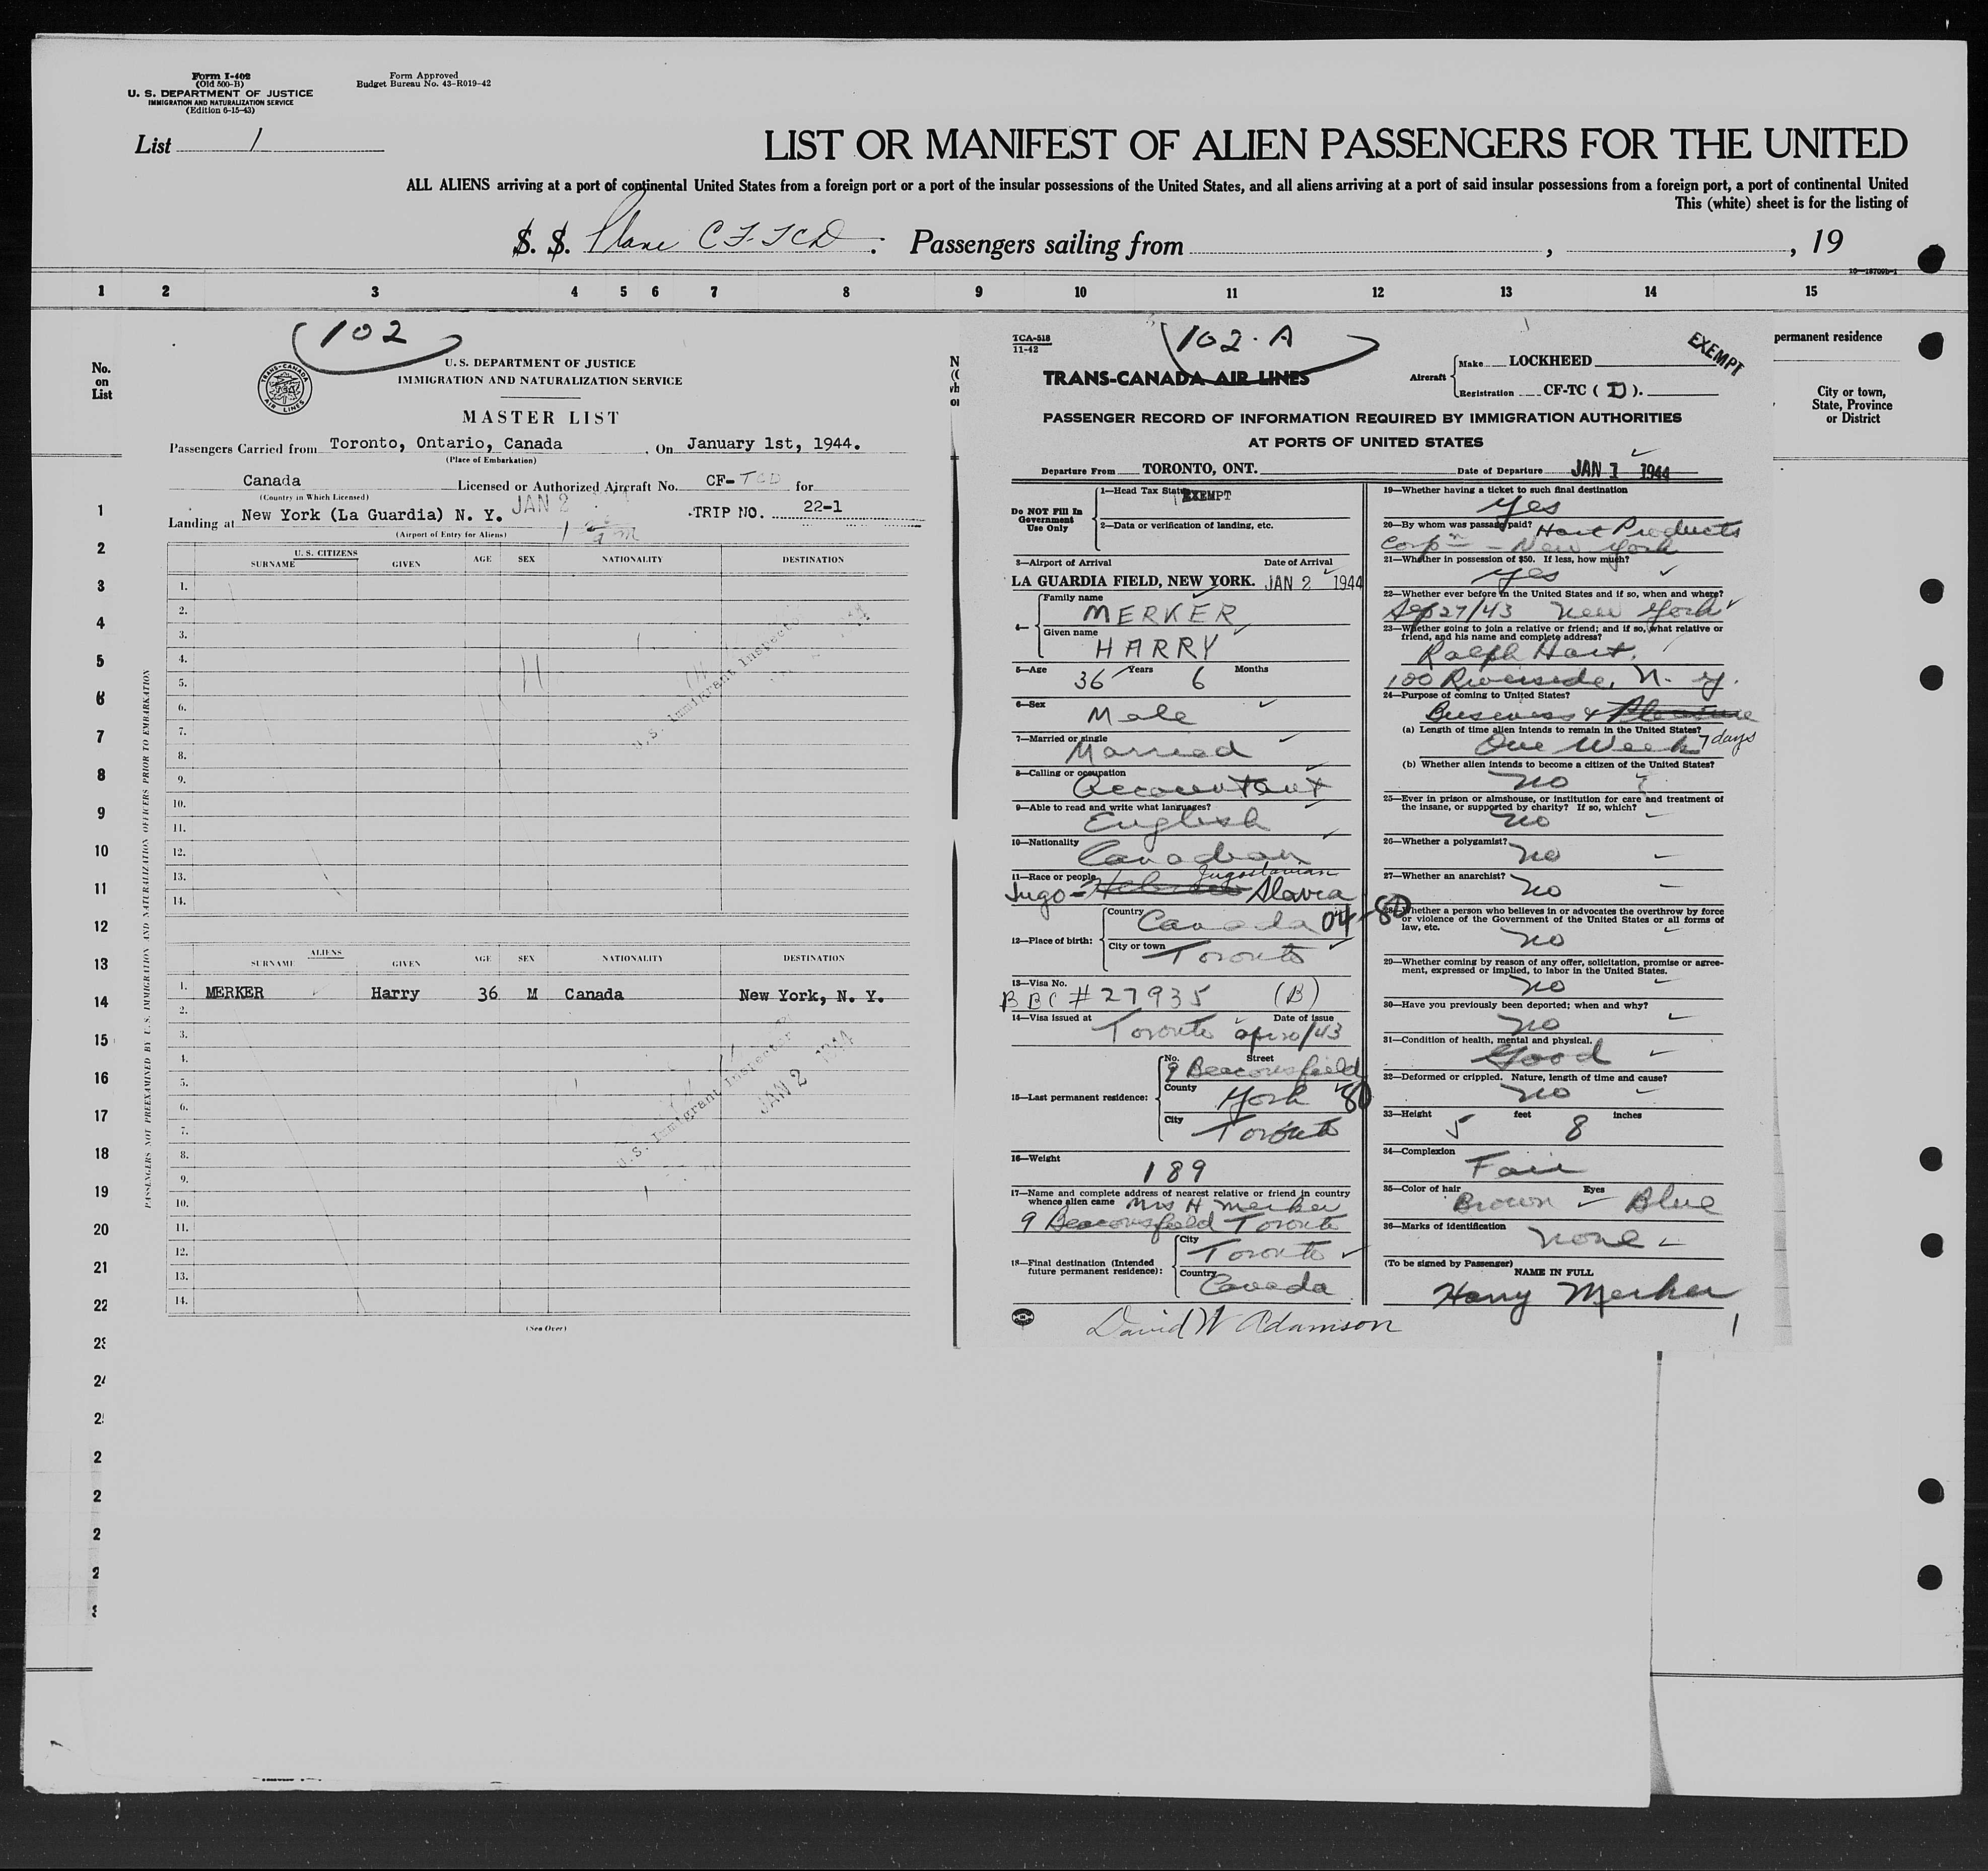 Form I-402
(Old 500-B)
U. S. DEPARTMENT OF JUSTICE
IMMIGRATION AND NATURALIZATION SERVICE
(Edition 6-15-43)
Form Approved
Budget Bureau No. 43-R019-42
List 1
LIST OR MANIFEST OF ALIEN PASSENGERS FOR THE UNITED
ALL ALIENS arriving at a port of continental United States from a foreign port or a port of the insular possessions of the United States, and all aliens arriving at a port of said insular possessions from a foreign port, a port of continental United
This (white) sheet is for the listing of
S. S. Plane CF-TCD. Passengers sailing from , , 19
1 2 3 4 5 6 7 8 9 10 11 12 13 14 15
No.
on
List
102
TRANS-CANADA AIR LINES
U. S. DEPARTMENT OF JUSTICE
IMMIGRATION AND NATURALIZATION SERVICE
MASTER LIST
Passengers Carried from Toronto, Ontario, Canada, On January 1st, 1944.
(Place of Embarkation)
Canada Licensed or Authorized Aircraft No. CF-TCD for
(Country in Which Licensed)
JAN 2
Landing at New York (La Guardia) N. Y. TRIP NO. 22-1
(Airport of Entry for Aliens)
U. S. CITIZENS
SURNAME GIVEN AGE SEX NATIONALITY DESTINATION
1.
2.
3.
4.
5.
6.
7.
8.
9.
10.
11.
12.
13.
14.
U.S. Immigrant Inspector
ALIENS
SURNAME GIVEN AGE SEX NATIONALITY DESTINATION
1. MERKER Harry 36 M Canada New York, N. Y.
2.
3.
4.
5.
6.
7.
8.
9.
10.
11.
12.
13.
14.
U.S. Immigrant Inspector
JAN 2 1944
(See Over)
PASSENGERS NOT PREEXAMINED BY U.S. IMMIGRATION AND NATURALIZATION OFFICERS PRIOR TO EMBARKATION
1
2
3
4
5
6
7
8
9
10
11
12
13
14
15
16
17
18
19
20
21
22
TCA-518
11-42
102-A
TRANS-CANADA AIR LINES
Aircraft
Make LOCKHEED
Registration CF-TC ( D ).
EXEMPT
PASSENGER RECORD OF INFORMATION REQUIRED BY IMMIGRATION AUTHORITIES
AT PORTS OF UNITED STATES
Departure From TORONTO, ONT. Date of Departure JAN 1 1944
Do NOT Fill In
Government
Use Only
1—Head Tax Status EXEMPT
2—Data or verification of landing, etc.
3—Airport of Arrival Date of Arrival
LA GUARDIA FIELD, NEW YORK. JAN 2 1944
4—
Family name
MERKER
Given name
HARRY
5—Age 36 Years 6 Months
6—Sex
Male
7—Married or single
Married
8—Calling or occupation
Accountant
9—Able to read and write what languages?
English
10—Nationality
Canadian
11—Race or people Jugoslavian
Jugo-Hebrew Slavia
12—Place of birth:
Country
Canada 04-80
City or town
Toronto
13—Visa No.
BBC #27935 (B)
14—Visa issued at Date of issue
Toronto Apr 10/43
15—Last permanent residence:
No. Street
9 Beaconsfield
County
York 80
City
Toronto
16—Weight
189
17—Name and complete address of nearest relative or friend in country
whence alien came Mrs H Merker
9 Beaconsfield Toronto
18—Final destination (Intended
future permanent residence):
City
Toronto
Country
Canada
David W Adamson
19—Whether having a ticket to such final destination
Yes
20—By whom was passage paid? Hart Products
Corpn - New York
21—Whether in possession of $50. If less, how much?
Yes
22—Whether ever before in the United States and if so, when and where?
Sep 27/43 New York
23—Whether going to join a relative or friend; and if so, what relative or
friend, and his name and complete address?
Ralph Hart.
100 Riverside, N. Y.
24—Purpose of coming to United States?
Business & Pleasure
(a) Length of time alien intends to remain in the United States?
One Week 7 days
(b) Whether alien intends to become a citizen of the United States?
No
25—Ever in prison or almshouse, or institution for care and treatment of
the insane, or supported by charity? If so, which?
No
26—Whether a polygamist?
No
27—Whether an anarchist?
No
28—Whether a person who believes in or advocates the overthrow by force
or violence of the Government of the United States or all forms of
law, etc.
No
29—Whether coming by reason of any offer, solicitation, promise or agree-
ment, expressed or implied, to labor in the United States.
No
30—Have you previously been deported; when and why?
No
31—Condition of health, mental and physical.
Good
32—Deformed or crippled. Nature, length of time and cause?
No
33—Height 5 feet 8 inches
34—Complexion
Fair
35—Color of hair Eyes
Brown Blue
36—Marks of identification
None
(To be signed by Passenger)
NAME IN FULL
Harry Merker
1
permanent residence
City or town,
State, Province
or District